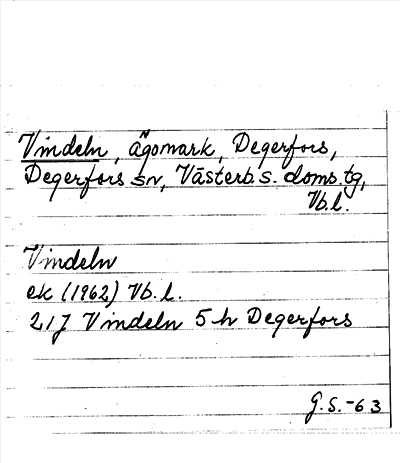 Vindeln, ägomark, Degerfors,
Degerfors sn, Västerb. s. doms. tg,
Vb.l.
Vindeln
ek (1962) Vb. l.
21J Vindeln 5 h Degerfors
G.S.-63